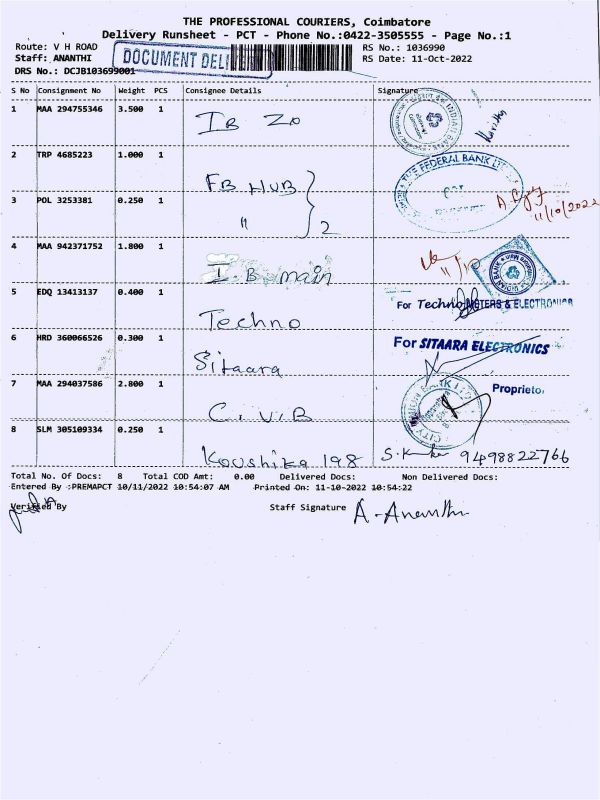 THE PROFESSIONAL COURIERS, Coimbatore
Delivery Runsheet - PCT - Phone No.:0422-3505555 - Page No.:1
Route: V H ROAD RS No.: 1036990
Staff: ANANTHI DOCUMENT DELI RS Date: 11-Oct-2022
DRS No.: DCJB103699001
S No Consignment No Weight PCS Consignee Details Signature
1 MAA 294755346 3.500 1
IB Zo
INDIAN BANK
2 TRP 4685223 1.000 1
FB HUB
THE FEDERAL BANK LTD
3 POL 3253381 0.250 1
" 2
11/10/2022
4 MAA 942371752 1.800 1
I.B main
INDIAN BANK
5 EDQ 13413137 0.400 1
For Techno METERS & ELECTRONICS
Techno
6 HRD 360066526 0.300 1
For SITAARA ELECTRONICS
Sitaara
7 MAA 294037586 2.800 1
Proprietor
C.U.B
8 SLM 305109334 0.250 1
Koushika 198 S.K 9498822766
Total No. Of Docs: 8 Total COD Amt: 0.00 Delivered Docs: Non Delivered Docs:
Entered By :PREMAPCT 10/11/2022 10:54:07 AM Printed On: 11-10-2022 10:54:22
Verified By Staff Signature A-Ananthi